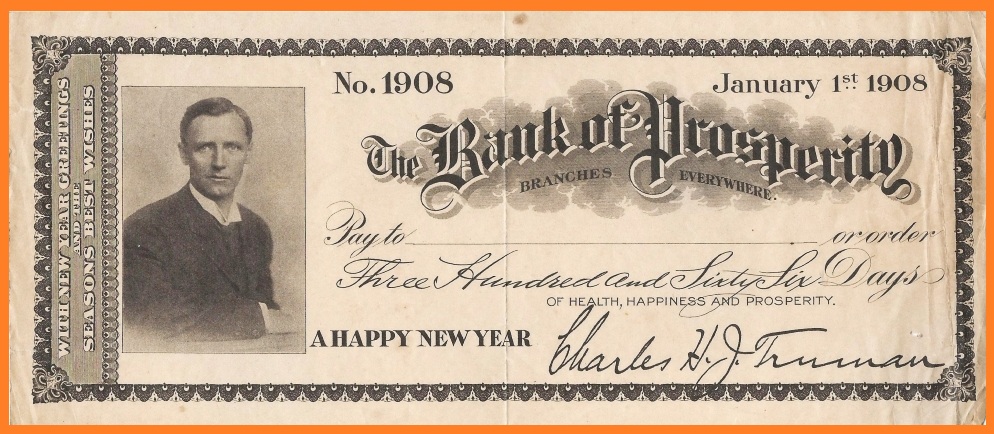 WITH NEW YEAR GREETINGS
AND THE
SEASONS BEST WISHES
No. 1908
January 1st 1908
The Bank of Prosperity
BRANCHES EVERYWHERE.
Pay to or order
Three Hundred and Sixty Six Days
OF HEALTH, HAPPINESS AND PROSPERITY.
A HAPPY NEW YEAR
Charles H. J. Truman